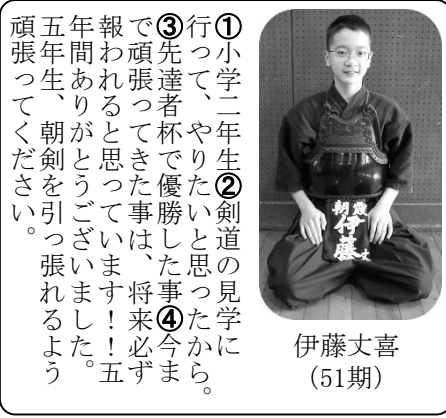 ①小学二年生②剣道の見学に
行って、やりたいと思ったから。
③先達者杯で優勝した事④今ま
で頑張ってきた事は、将来必ず
報われると思っています！！五
年間ありがとうございました。
五年生、朝剣を引っ張れるよう
頑張ってください。
朝霞
伊藤
丈
伊藤丈喜
(51期)